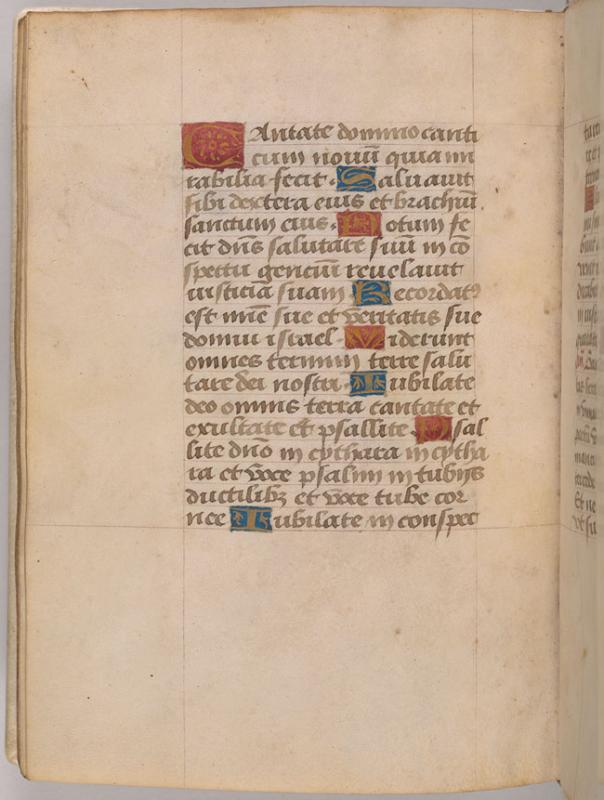 Cantate domino canti
cum nouū quia mi
rabilia fecit. Saluauit
sibi dextera eius et brachiū.
sanctum eius. Notum fe
cit dn̄s salutare suū in cō
spectu genciū reuelauit
iusticiā suam. Recordatꝰ
est mīe sue et veritatis sue
domui israel. Viderunt
omnes termini terre salu
tare dei nostri. Iubilate
deo omnis terra cantate et
exultate et psallite. Psal
lite dn̄o in cythara in cytha
ra et voce psalmi in tubijs
ductilibꝫ et voce tube cor
nee Iubilate in conspec